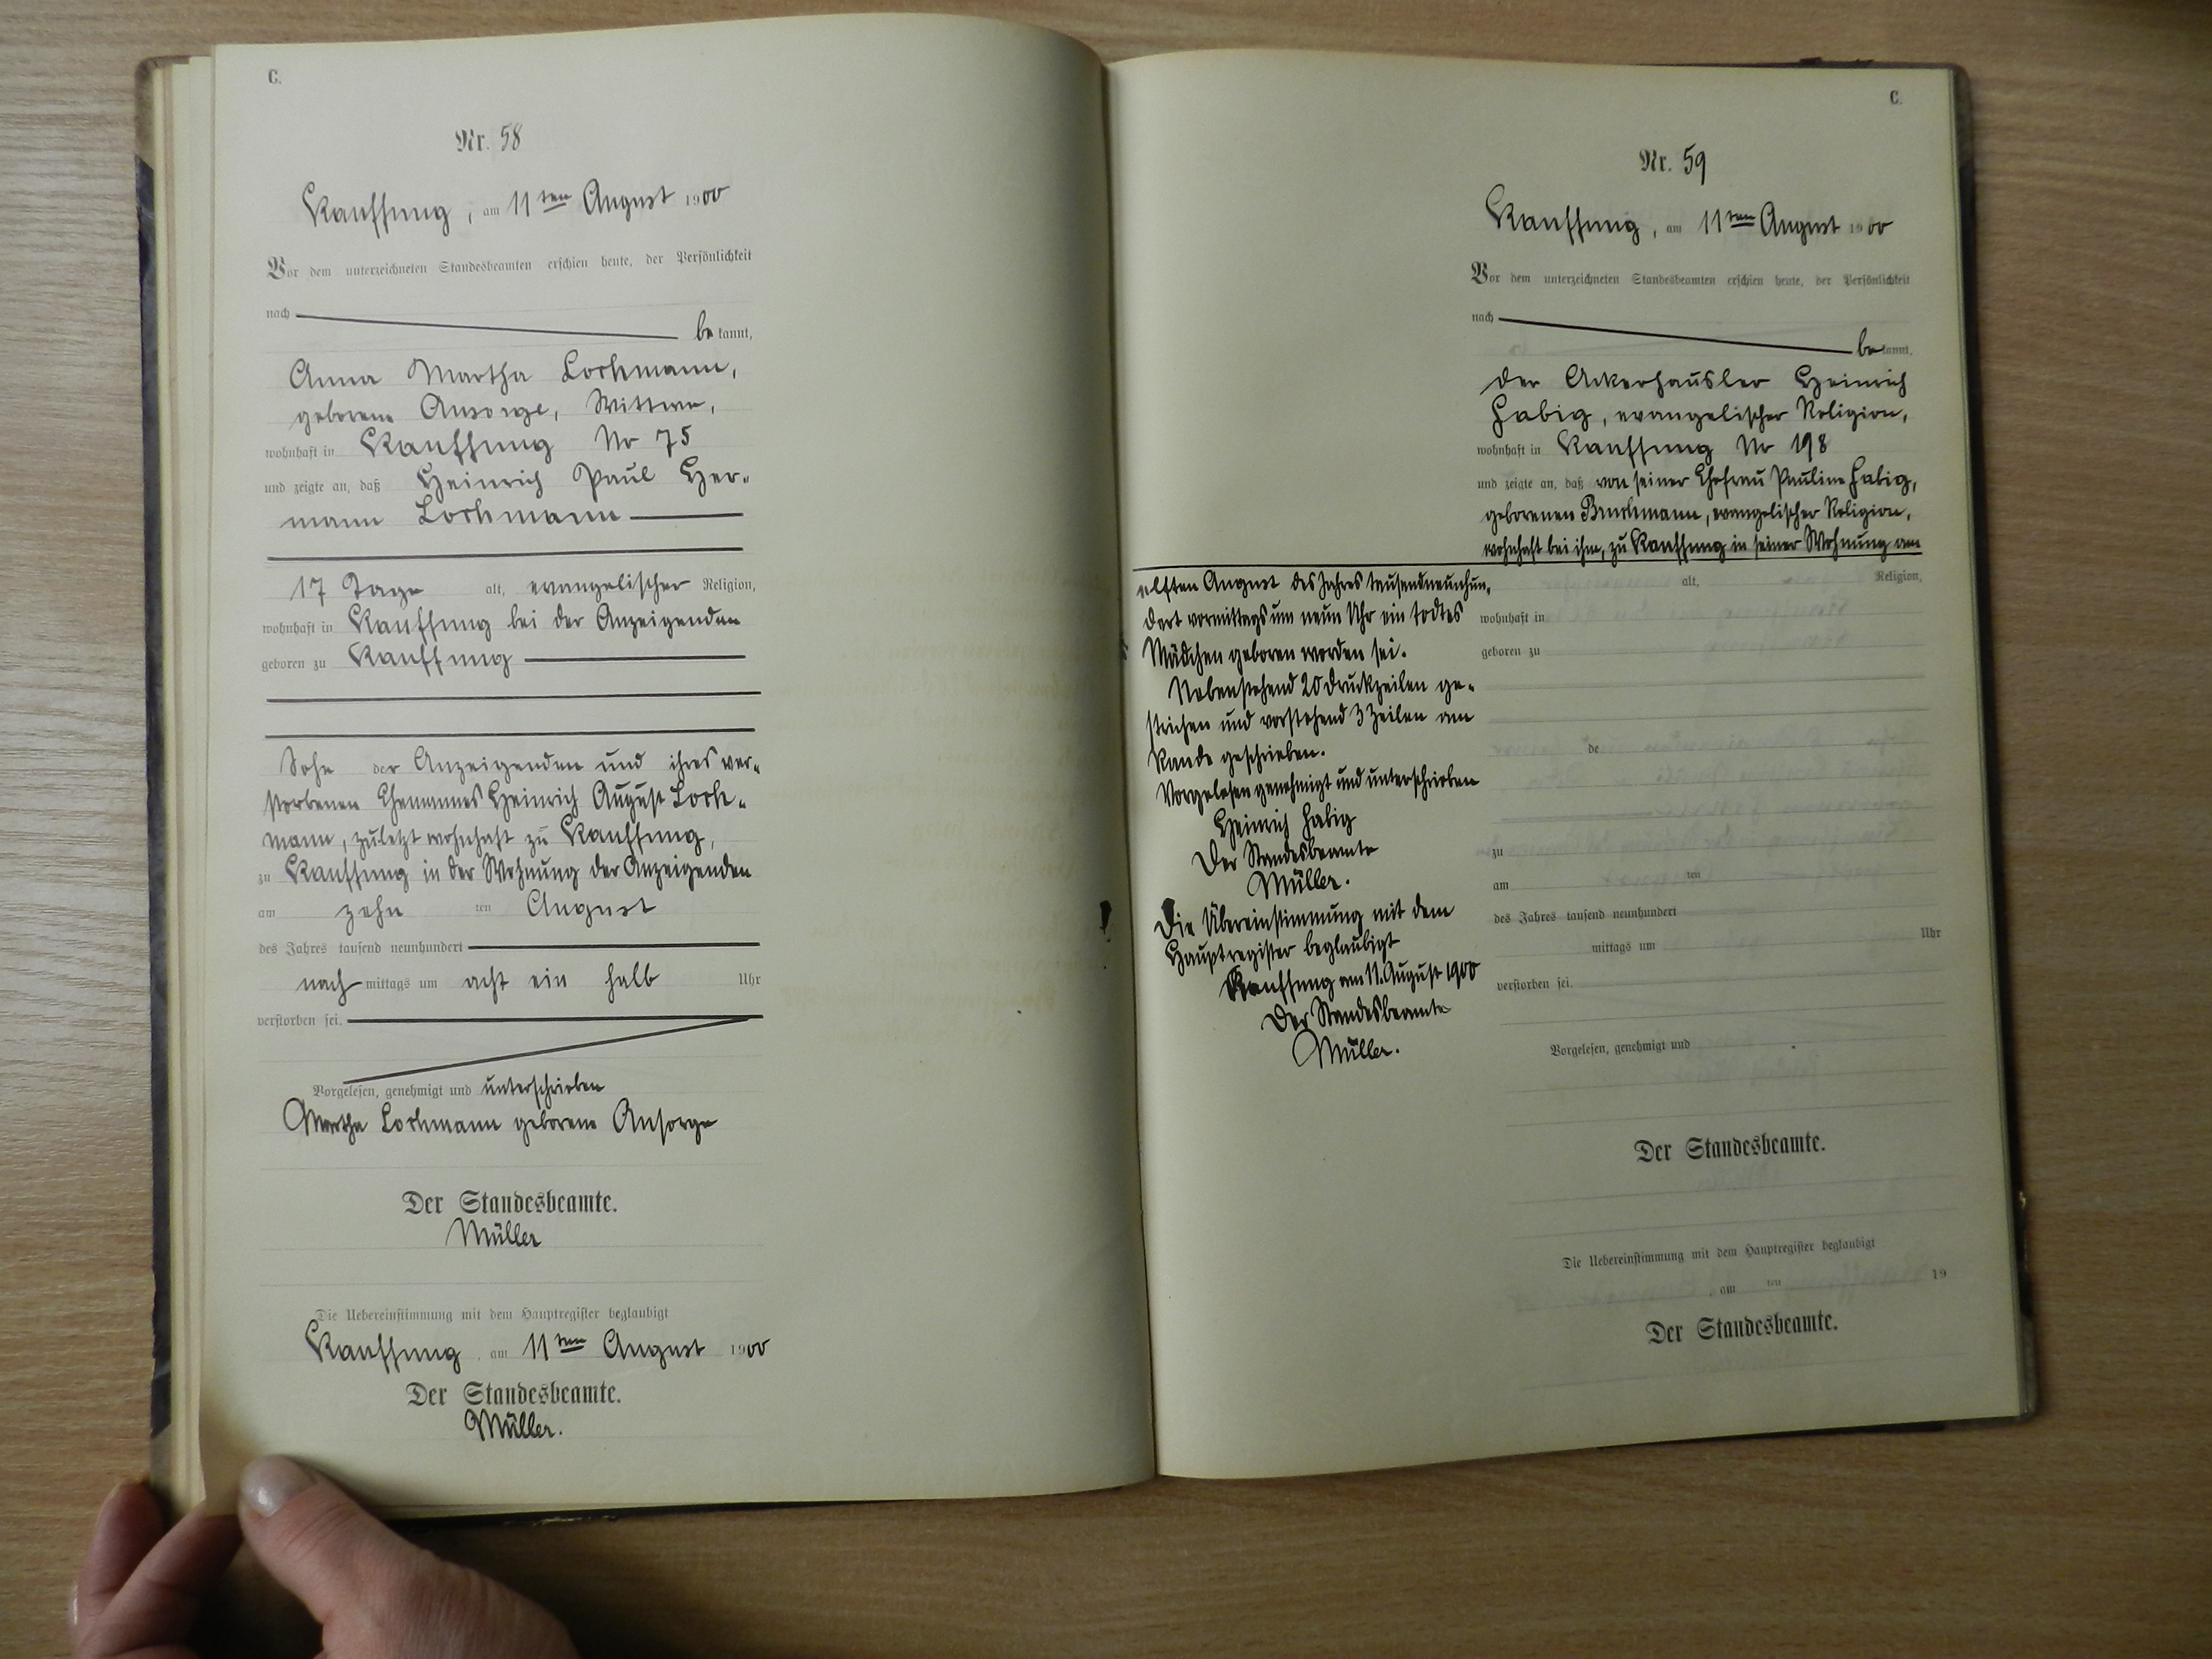 C.
Nr. 58
Kauffung, am 11ten August 1900
Vor dem unterzeichneten Standesbeamten erschien heute, der Persönlichkeit
nach
bekannt,
Anna Martha Lochmann,
geborene Ansorge, Wittwe,
wohnhaft in Kauffung No 75
und zeigte an, daß Heinrich Paul Her-
mann Lochmann
17 Tage alt, evangelischer Religion,
wohnhaft in Kauffung bei der Anzeigenden
geboren zu Kauffung
Sohn der Anzeigenden und ihres ver-
storbenen Ehemannes Heinrich August Loch-
mann, zuletzt wohnhaft zu Kauffung,
zu Kauffung in der Wohnung der Anzeigenden
am zehn ten August
des Jahres tausend neunhundert
nach mittags um acht ein halb Uhr
verstorben sei.
Vorgelesen, genehmigt und unterschrieben
Martha Lochmann geborene Ansorge
Der Standesbeamte.
Müller
Die Uebereinstimmung mit dem Hauptregister beglaubigt
Kauffung, am 11ten August 1900
Der Standesbeamte.
Müller.
C.
Nr. 59
Kauffung, am 11ten August 1900
Vor dem unterzeichneten Standesbeamten erschien heute, der Persönlichkeit
nach
bekannt,
der Ackerhäusler Heinrich
Habig, evangelischer Religion,
wohnhaft in Kauffung No 198
und zeigte an, daß von seiner Ehefrau Pauline Habig,
geborenen Bruchmann, evangelischer Religion,
wohnhaft bei ihm, zu Kauffung in seiner Wohnung am
elften August des Jahres tausendneunhun-
dert vormittags um neun Uhr ein todtes
Mädchen geboren worden sei.
Nebenstehend 20 Druckzeilen ge-
strichen und vorstehend 3 Zeilen am
Rande geschrieben.
Vorgelesen genehmigt und unterschrieben
Heinrich Habig
Der Standesbeamte
Müller.
Die Übereinstimmung mit dem
Hauptregister beglaubigt
Kauffung am 11. August 1900
Der Standesbeamte
Müller.
alt, Religion,
wohnhaft in
geboren zu
de
zu
am ten
des Jahres tausend neunhundert
mittags um Uhr
verstorben sei.
Vorgelesen, genehmigt und
Der Standesbeamte.
Die Uebereinstimmung mit dem Hauptregister beglaubigt
, am ten 19
Der Standesbeamte.